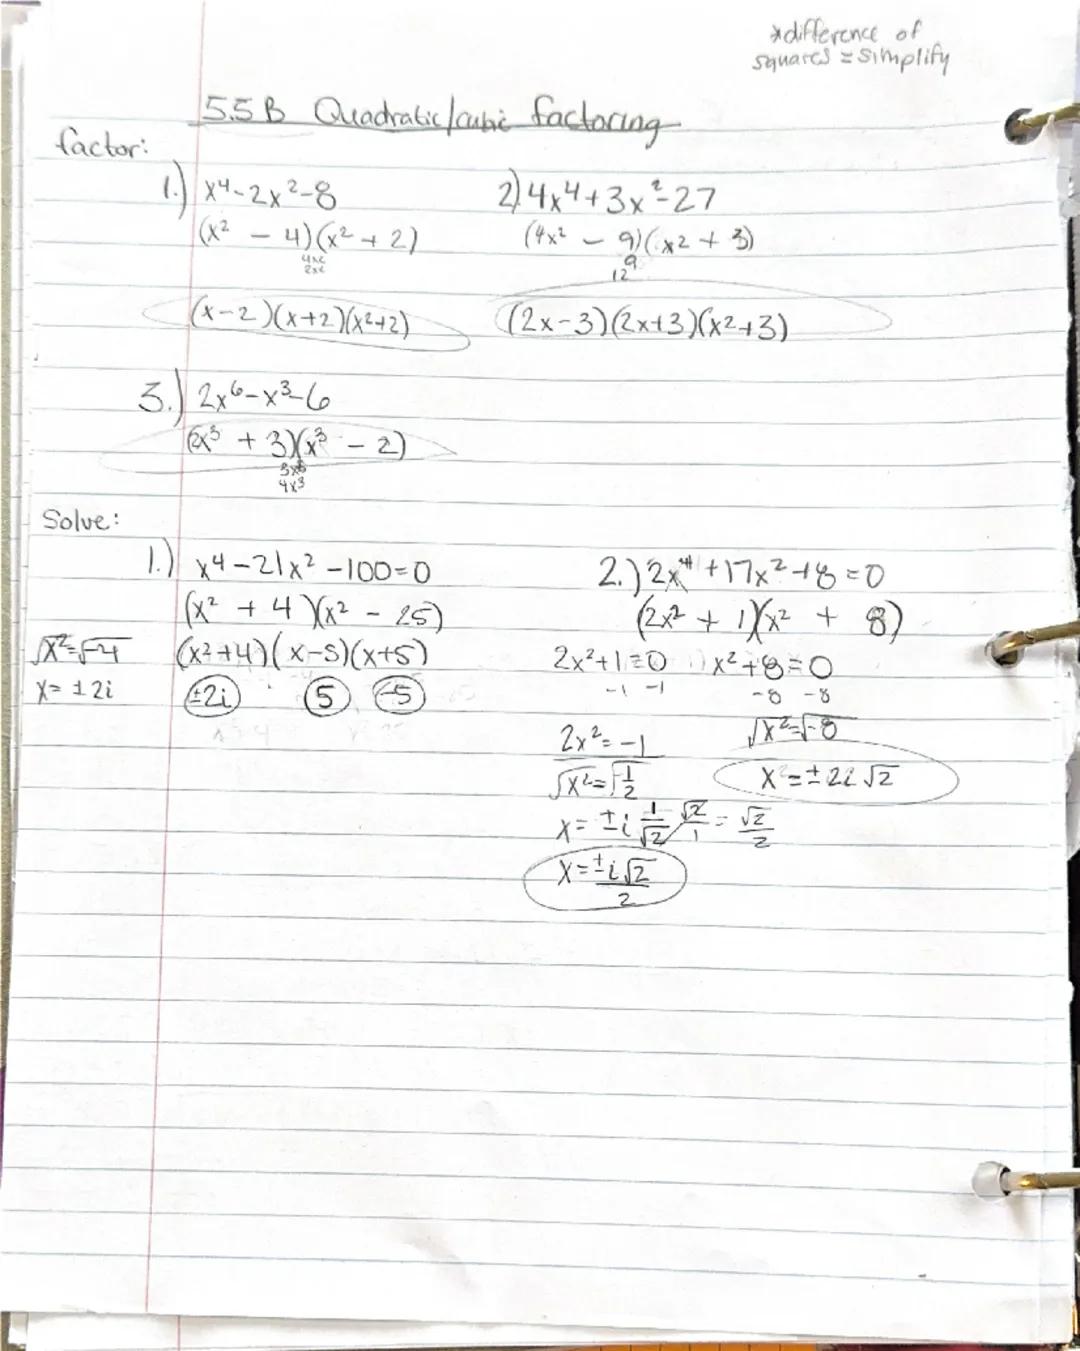 *difference of
squares = simplify
5.5 B Quadratic/cubic factoring
factor:
1.) x⁴-2x²-8
(x² - 4)(x² + 2)
4x²
2x²
(x-2)(x+2)(x²+2)
2) 4x⁴+3x²-27
(4x² - 9)(x² + 3)
9
12
(2x-3)(2x+3)(x²+3)
3.) 2x⁶-x³-6
(2x³ + 3)(x³ - 2)
3x³
4x³
Solve:
1.) x⁴-21x²-100=0
(x² + 4)(x² - 25)
(x²+4)(x-5)(x+5)
√x²=√-4
x= ±2i
±2i 5 -5
2.) 2x⁴+17x²+8=0
(2x² + 1)(x² + 8)
2x²+1=0 x²+8=0
-1 -1 -8 -8
2x²=-1 √x²=√-8
√x²=√-1/2 x²=±2i√2
x=±i 1/√2 √2/1 = √2/2
x=±i√2/2